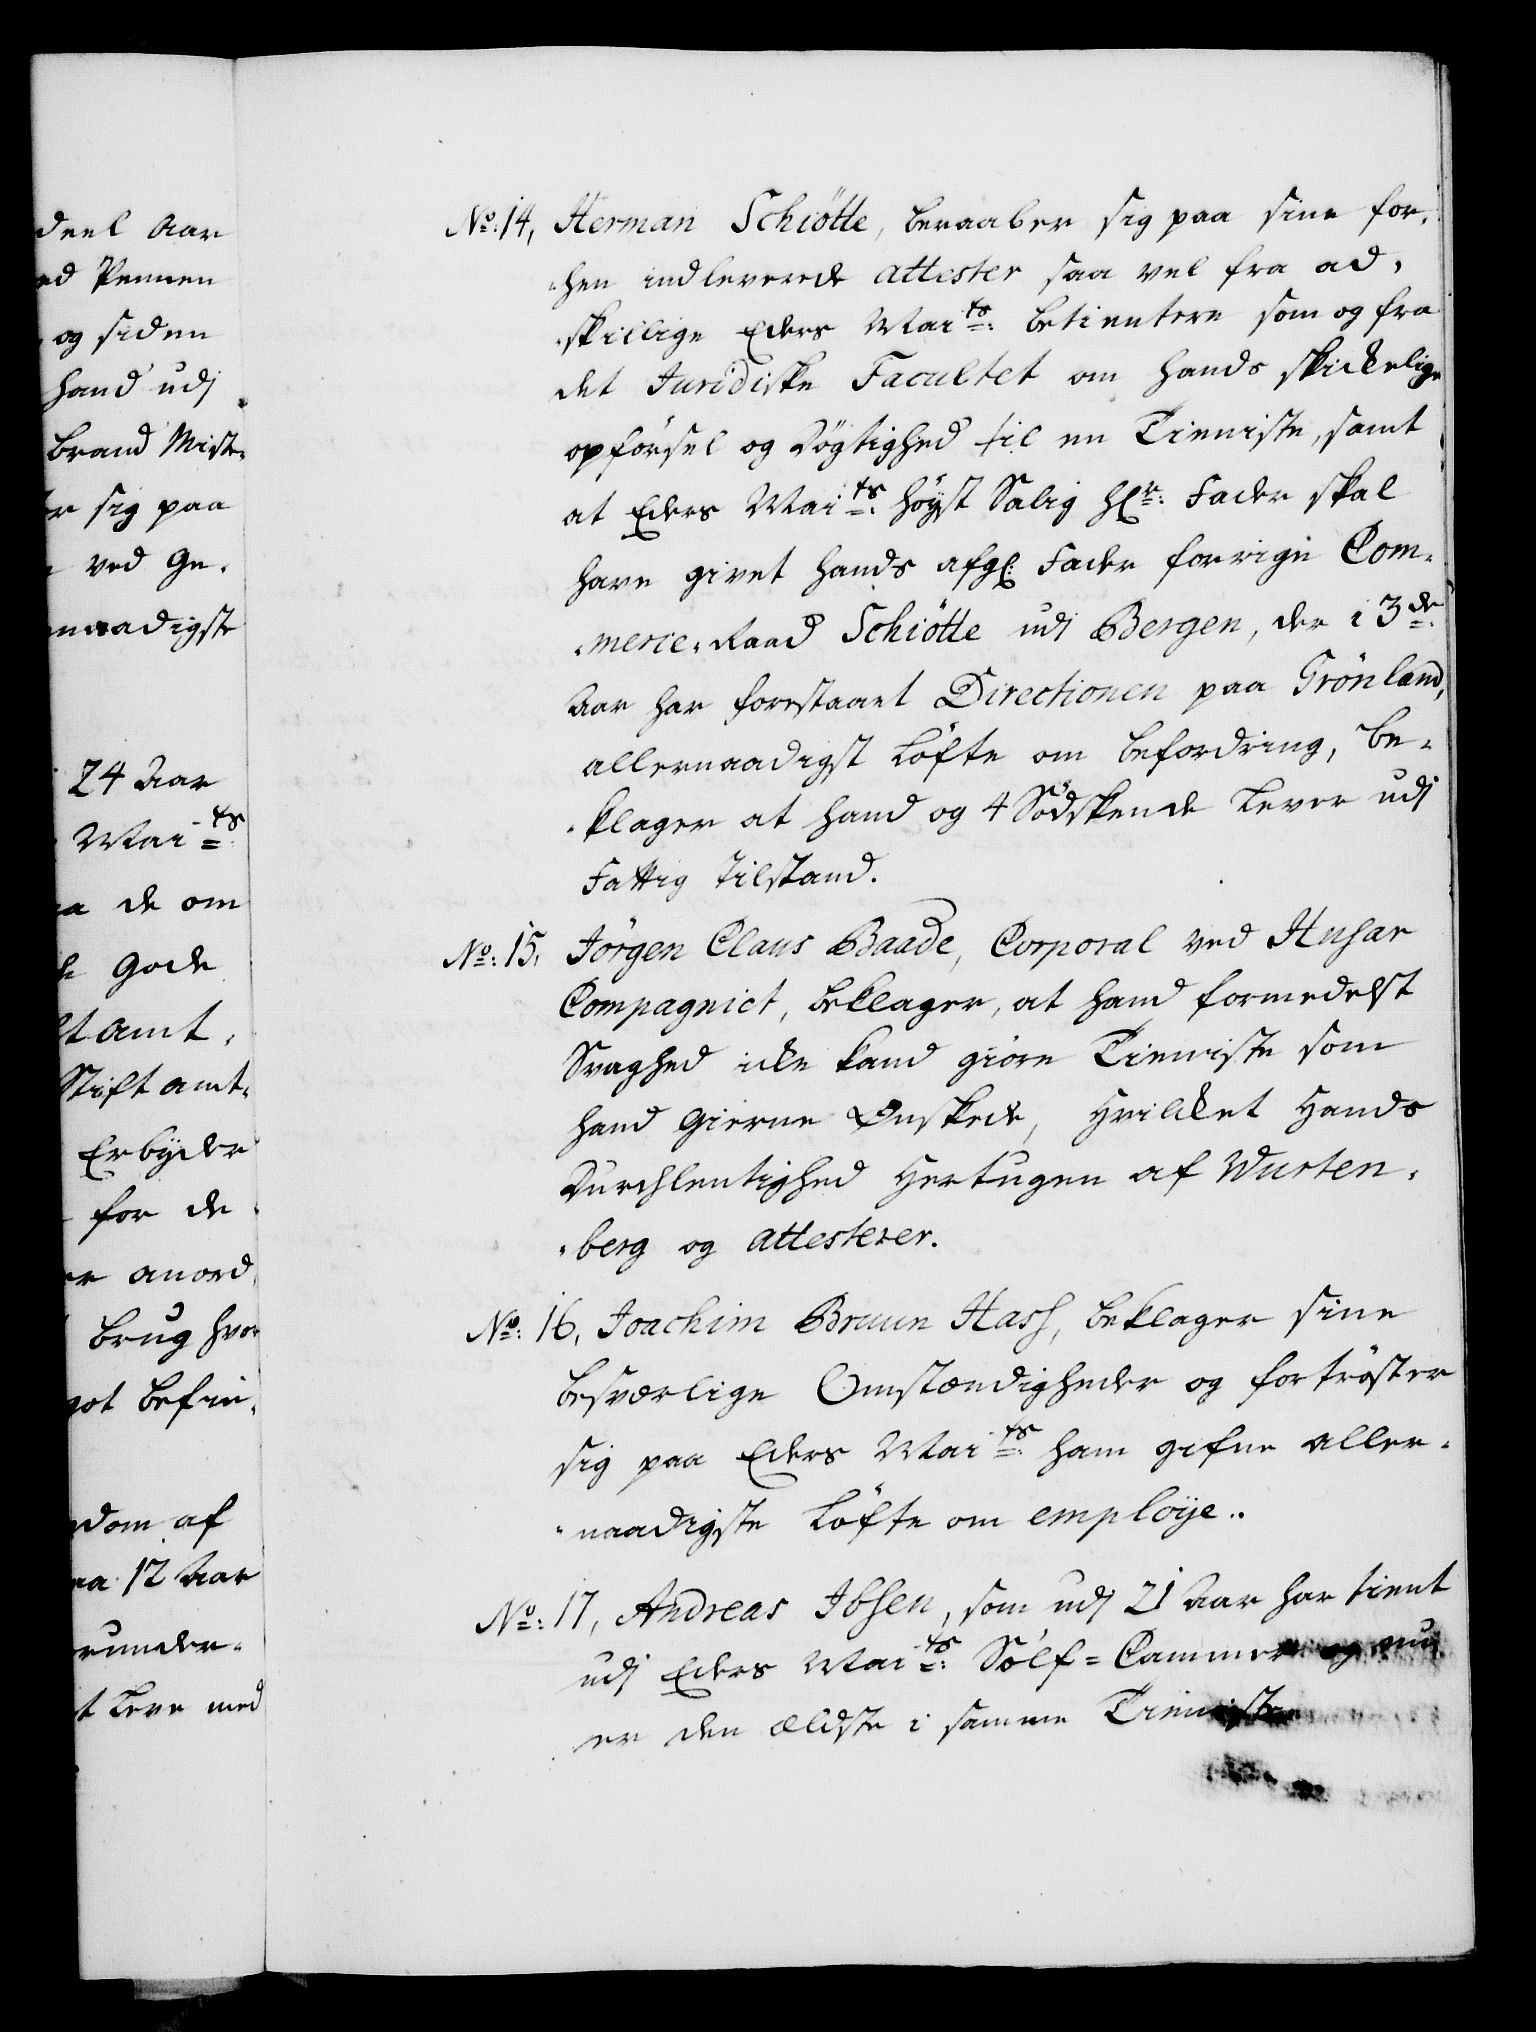 deel Aar
ed Pennen
og siden
hand udj
brand Miste-
er sig paa
ved Ge-
naadigste
24 Aar
Mai^ts:
a de om
Gode
lt amt,
Stift amt-
Erbyder
for de
er anord
brug hvor
got befin-
dom af
aa 12 Aar
runder-
t Leve med
No: 14, Herman Schiötte, beraaber sig paa sine for-
-hen indleverede attester saa vel fra ad-
-skillige Eders Mai^ts: betientere som og fra
det Juridiske Facultet om hands skickelige
opförsel og Dögtighed til en Tieniste, samt
at Eders Mai^ts: höyst Salig Hr: Fader skal
have givet hands afg: Fader forrige Com-
-merce-Raad Schiötte udj Bergen, der i 3^de:
Aar har forestaaet Directionen paa Grönland,
allernaadigst Löfte om befordring, be-
-klager at hand og 4 Södskende Lever udj
Fattig Tilstand.
No: 15, Jörgen Claus Baade, Corporal ved Husar
Compagniet, beklager, at hand formedelst
Svaghed icke kand giöre Tieniste som
hand gierne Ønskede, Hvilcket Hands
Durchleutighed Hertugen af Wurten-
-berg og attesterer.
No: 16, Joachim Bruun Hass, beklager sine
besværlige Omstændigheder og fortröster
sig paa Eders Mai^ts: ham gifne aller-
-naadigste Löfte om employe..
No: 17, Andreas Ibsen, som udj 21 Aar har tient
udj Eders Mai^ts: Sölf=Cammer og nu
er den ældste i samme Tieniste